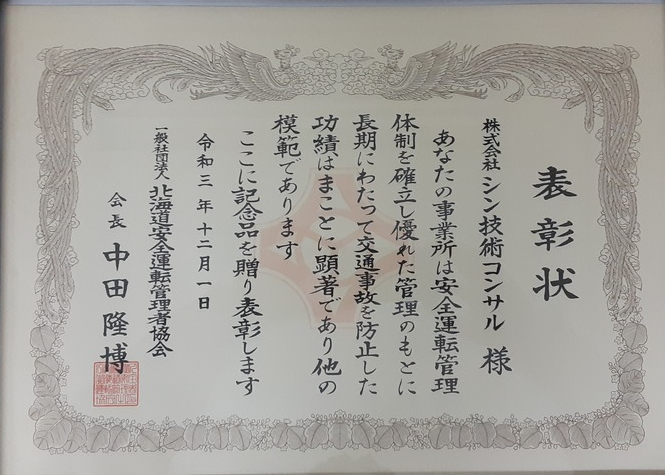 表彰状
株式会社 シン技術コンサル 様
あなたの事業所は安全運転管理
体制を確立し優れた管理のもとに
長期にわたって交通事故を防止した
功績はまことに顕著であり他の
模範であります
ここに記念品を贈り表彰します
令和三年十二月一日
一般社団法人 北海道安全運転管理者協会
会長 中田隆博